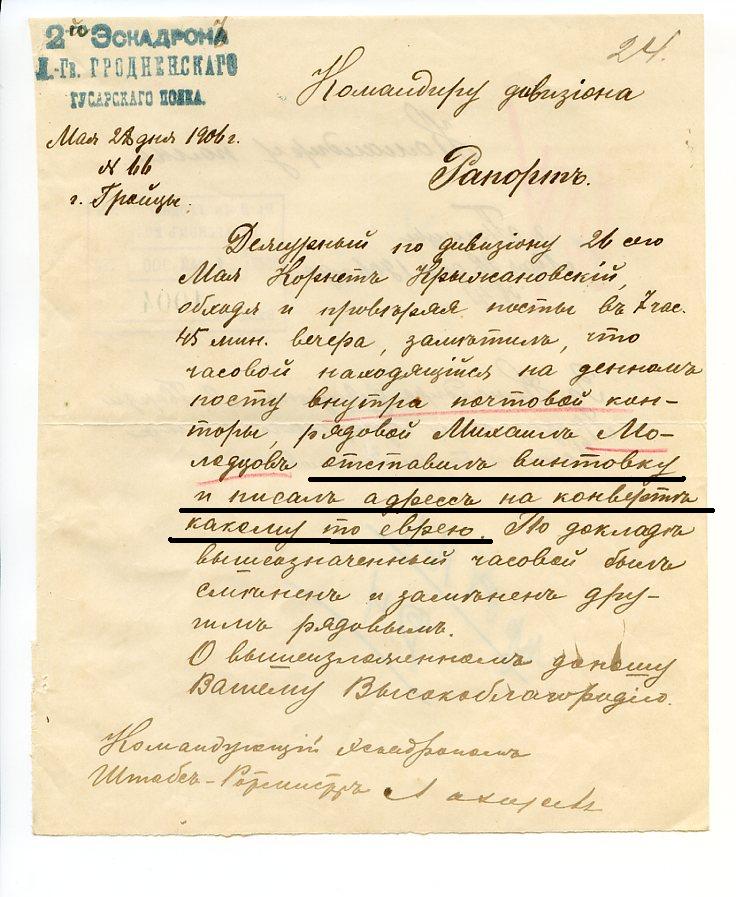 24.
2го ЭСКАДРОНА
Л.-Гв. ГРОДНЕНСКАГО
ГУСАРСКАГО ПОЛКА.
Командиру дивизіона
Мая дня 1906 г.
№ 66
г. Гройцы.
Рапортъ.
Дежурный по дивизіону 26 сего
Мая Корнетъ Крыжановскій,
обходя и провѣряя посты въ 7 час.
45 мин. вечера, замѣтилъ, что
часовой находящійся на денномъ
посту внутри почтовой кон-
торы, рядовой Михаилъ Мо-
лодцовъ отставилъ винтовку
и писалъ адрессъ на конвертѣ
какому то еврею. По докладѣ
вышеозначенный часовой былъ
смѣненъ и замѣненъ дру-
гимъ рядовымъ.
О вышеизложенномъ доношу
Вашему Высокоблагородію.
Командующій эскадрономъ
Штабсъ-Ротмистръ